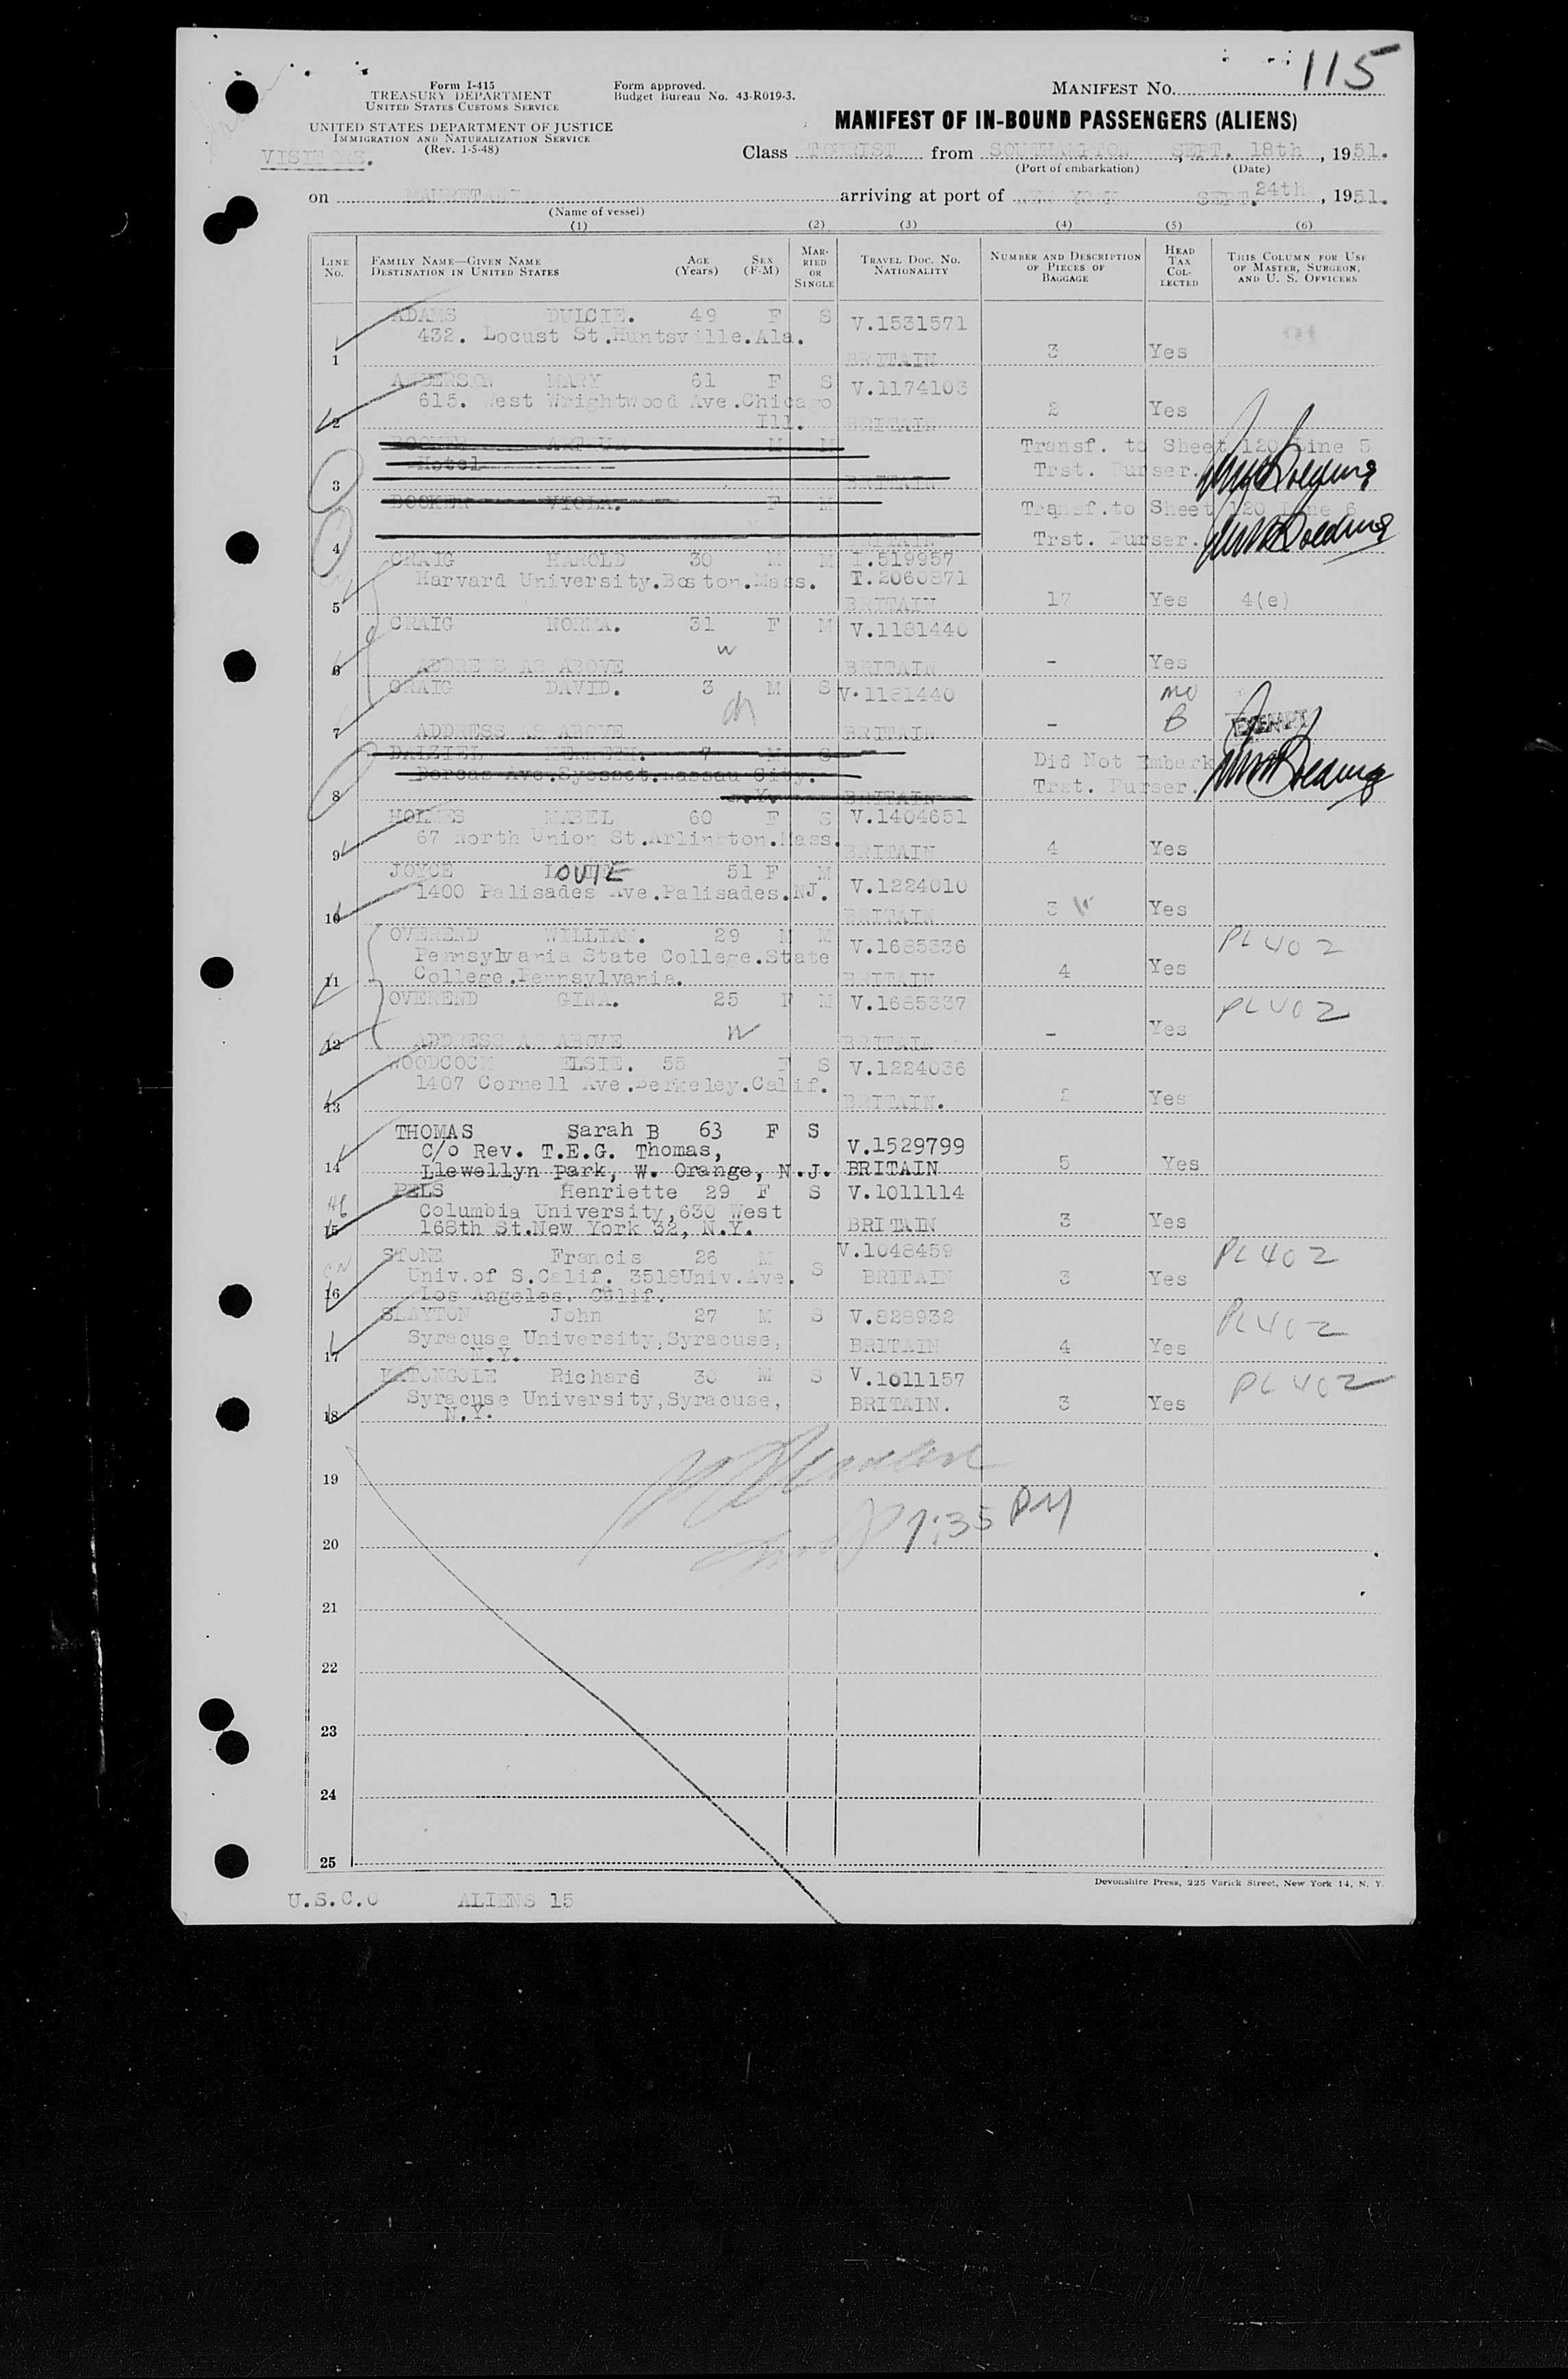 115
Form I-415
TREASURY DEPARTMENT
UNITED STATES CUSTOMS SERVICE
Form approved.
Budget Bureau No. 43-R019-3.
MANIFEST NO.
UNITED STATES DEPARTMENT OF JUSTICE
IMMIGRATION AND NATURALIZATION SERVICE
(Rev. 1-5-48)
MANIFEST OF IN-BOUND PASSENGERS (ALIENS)
VISITORS.
Class TOURIST from SOUTHAMPTON, SEPT. 18th, 1951.
(Port of embarkation) (Date)
on MAURETANIA arriving at port of NEW YORK SEPT. 24th, 1951.
(Name of vessel)
(1) (2) (3) (4) (5) (6)
LINE NO. FAMILY NAME—GIVEN NAME DESTINATION IN UNITED STATES AGE (Years) SEX (F-M) MARRIED OR SINGLE TRAVEL DOC. NO. NATIONALITY NUMBER AND DESCRIPTION OF PIECES OF BAGGAGE HEAD TAX COLLECTED THIS COLUMN FOR USE OF MASTER, SURGEON, AND U. S. OFFICERS
ADAMS DULCIE. 49 F S V.1531571
432. Locust St.Huntsville.Ala.
1 BRITAIN 3 Yes
ANDERSON MARY 61 F S V.1174103
615. West Wrightwood Ave.Chicago
2 Ill. BRITAIN 2 Yes
BOCKER ARTHUR M M Transf. to Sheet 120 Line 5
Hotel Trst. Purser.
3 BRITAIN
BOCKER VIOLA. F M Transf.to Sheet 120 Line 6
4 BRITAIN Trst. Purser.
CRAIG HAROLD 30 M M I.519957
Harvard University.Boston.Mass. T.2060871
5 BRITAIN 17 Yes 4(e)
CRAIG NORMA. 31 F M V.1181440
w
6 ADDRESS AS ABOVE BRITAIN - Yes
CRAIG DAVID. 3 M S V.1181440
7 ADDRESS AS ABOVE BRITAIN - B EXEMPT
DALZIEL 7 M S Did Not Embark
Dorcas Ave.Syosset.Nassau City.
8 N.Y. BRITAIN Trst. Purser.
HOLMES MABEL 60 F S V.1404651
67 North Union St.Arlington.Mass.
9 BRITAIN 4 Yes
JOYCE LOUIE 51 F M
1400 Palisades Ave.Palisades.NJ. V.1224010
10 BRITAIN 3 Yes
OVEREND WILLIAM. 29 M M V.1685336 PL 402
Pennsylvania State College.State
11 College.Pennsylvania. BRITAIN 4 Yes
OVEREND GINA. 25 F M V.1685337 PL 402
w
12 ADDRESS AS ABOVE BRITAIN - Yes
WOODCOCK ELSIE. 55 F S V.1224036
1407 Cornell Ave.Berkeley.Calif.
13 BRITAIN. 2 Yes
THOMAS Sarah B 63 F S
C/o Rev. T.E.G. Thomas, V.1529799
14 Llewellyn park, W. Orange, N.J. BRITAIN 5 Yes
PELS Henriette 29 F S V.1011114
Columbia University,630 West
15 168th St.New York 32, N.Y. BRITAIN 3 Yes
STONE Francis 26 M S V.1048459 PL 402
Univ.of S.Calif. 3518Univ.Ave. BRITAIN 3 Yes
16 Los Angeles. Calif.
SLAYTON John 27 M S V.828932 PL 402
Syracuse University,Syracuse, BRITAIN 4 Yes
17 N.Y.
KATONGOLE Richard 30 M S V.1011157 PL 402
Syracuse University,Syracuse, BRITAIN. 3 Yes
18 N.Y.
19
20 1:35 PM
21
22
23
24
25
Devonshire Press, 225 Varick Street, New York 14, N. Y.
U.S.C.O ALIENS 15